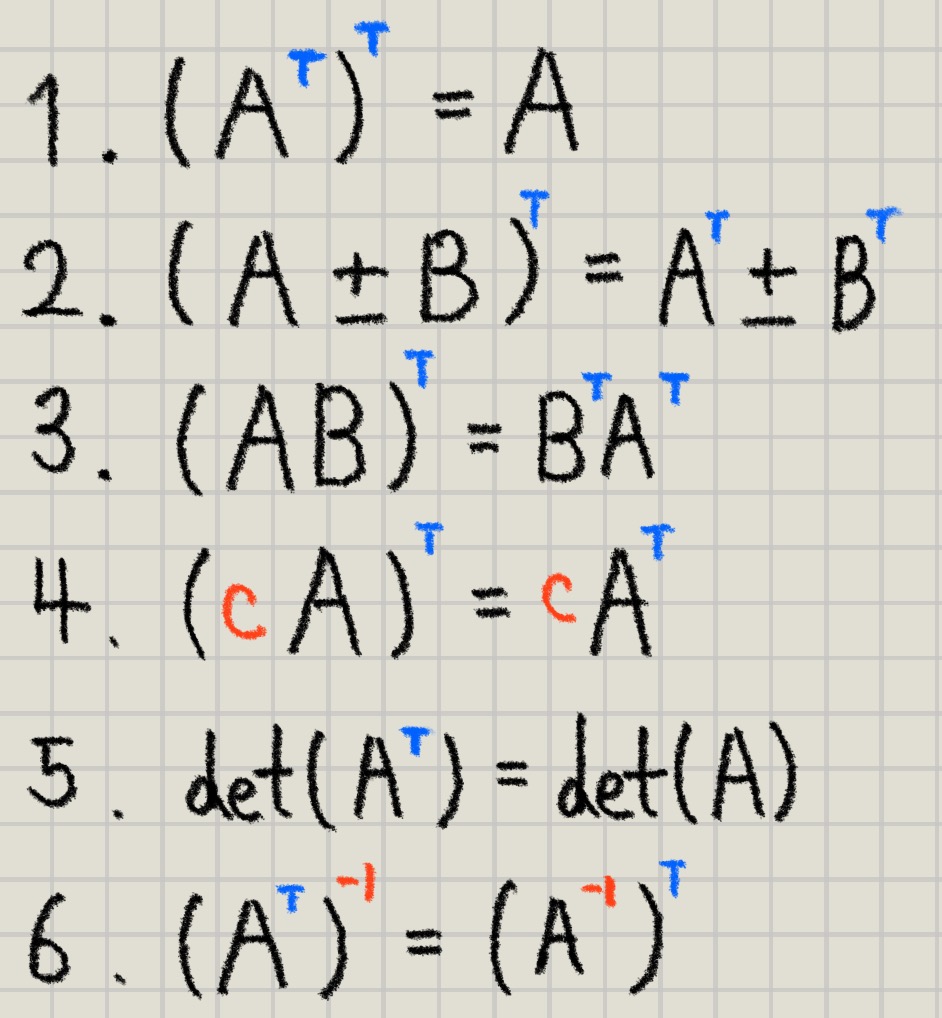 1. (Aᵀ)ᵀ = A
2. (A ± B)ᵀ = Aᵀ ± Bᵀ
3. (AB)ᵀ = BᵀAᵀ
4. (cA)ᵀ = cAᵀ
5. det(Aᵀ) = det(A)
6. (Aᵀ)⁻¹ = (A⁻¹)ᵀ